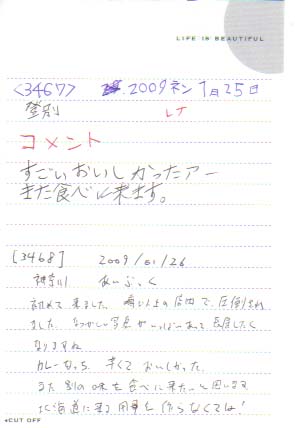 LIFE IS BEAUTIFUL
<3467> 2009ネン1月25日
登別 レナ
コメント
すごいおいしかったアー
また食べに来ます。
[3468] 2009/01/26
神奈川 あいぶっく
初めて来ました。 の店内で、圧倒され
ました。なつかしい写真がいっぱいあって長居したく
なりますね
カレーなっち、辛くておいしかった。
また 別の味を食べに来たいと思います
北海道に来る用事を作らなくては！
CUT OFF